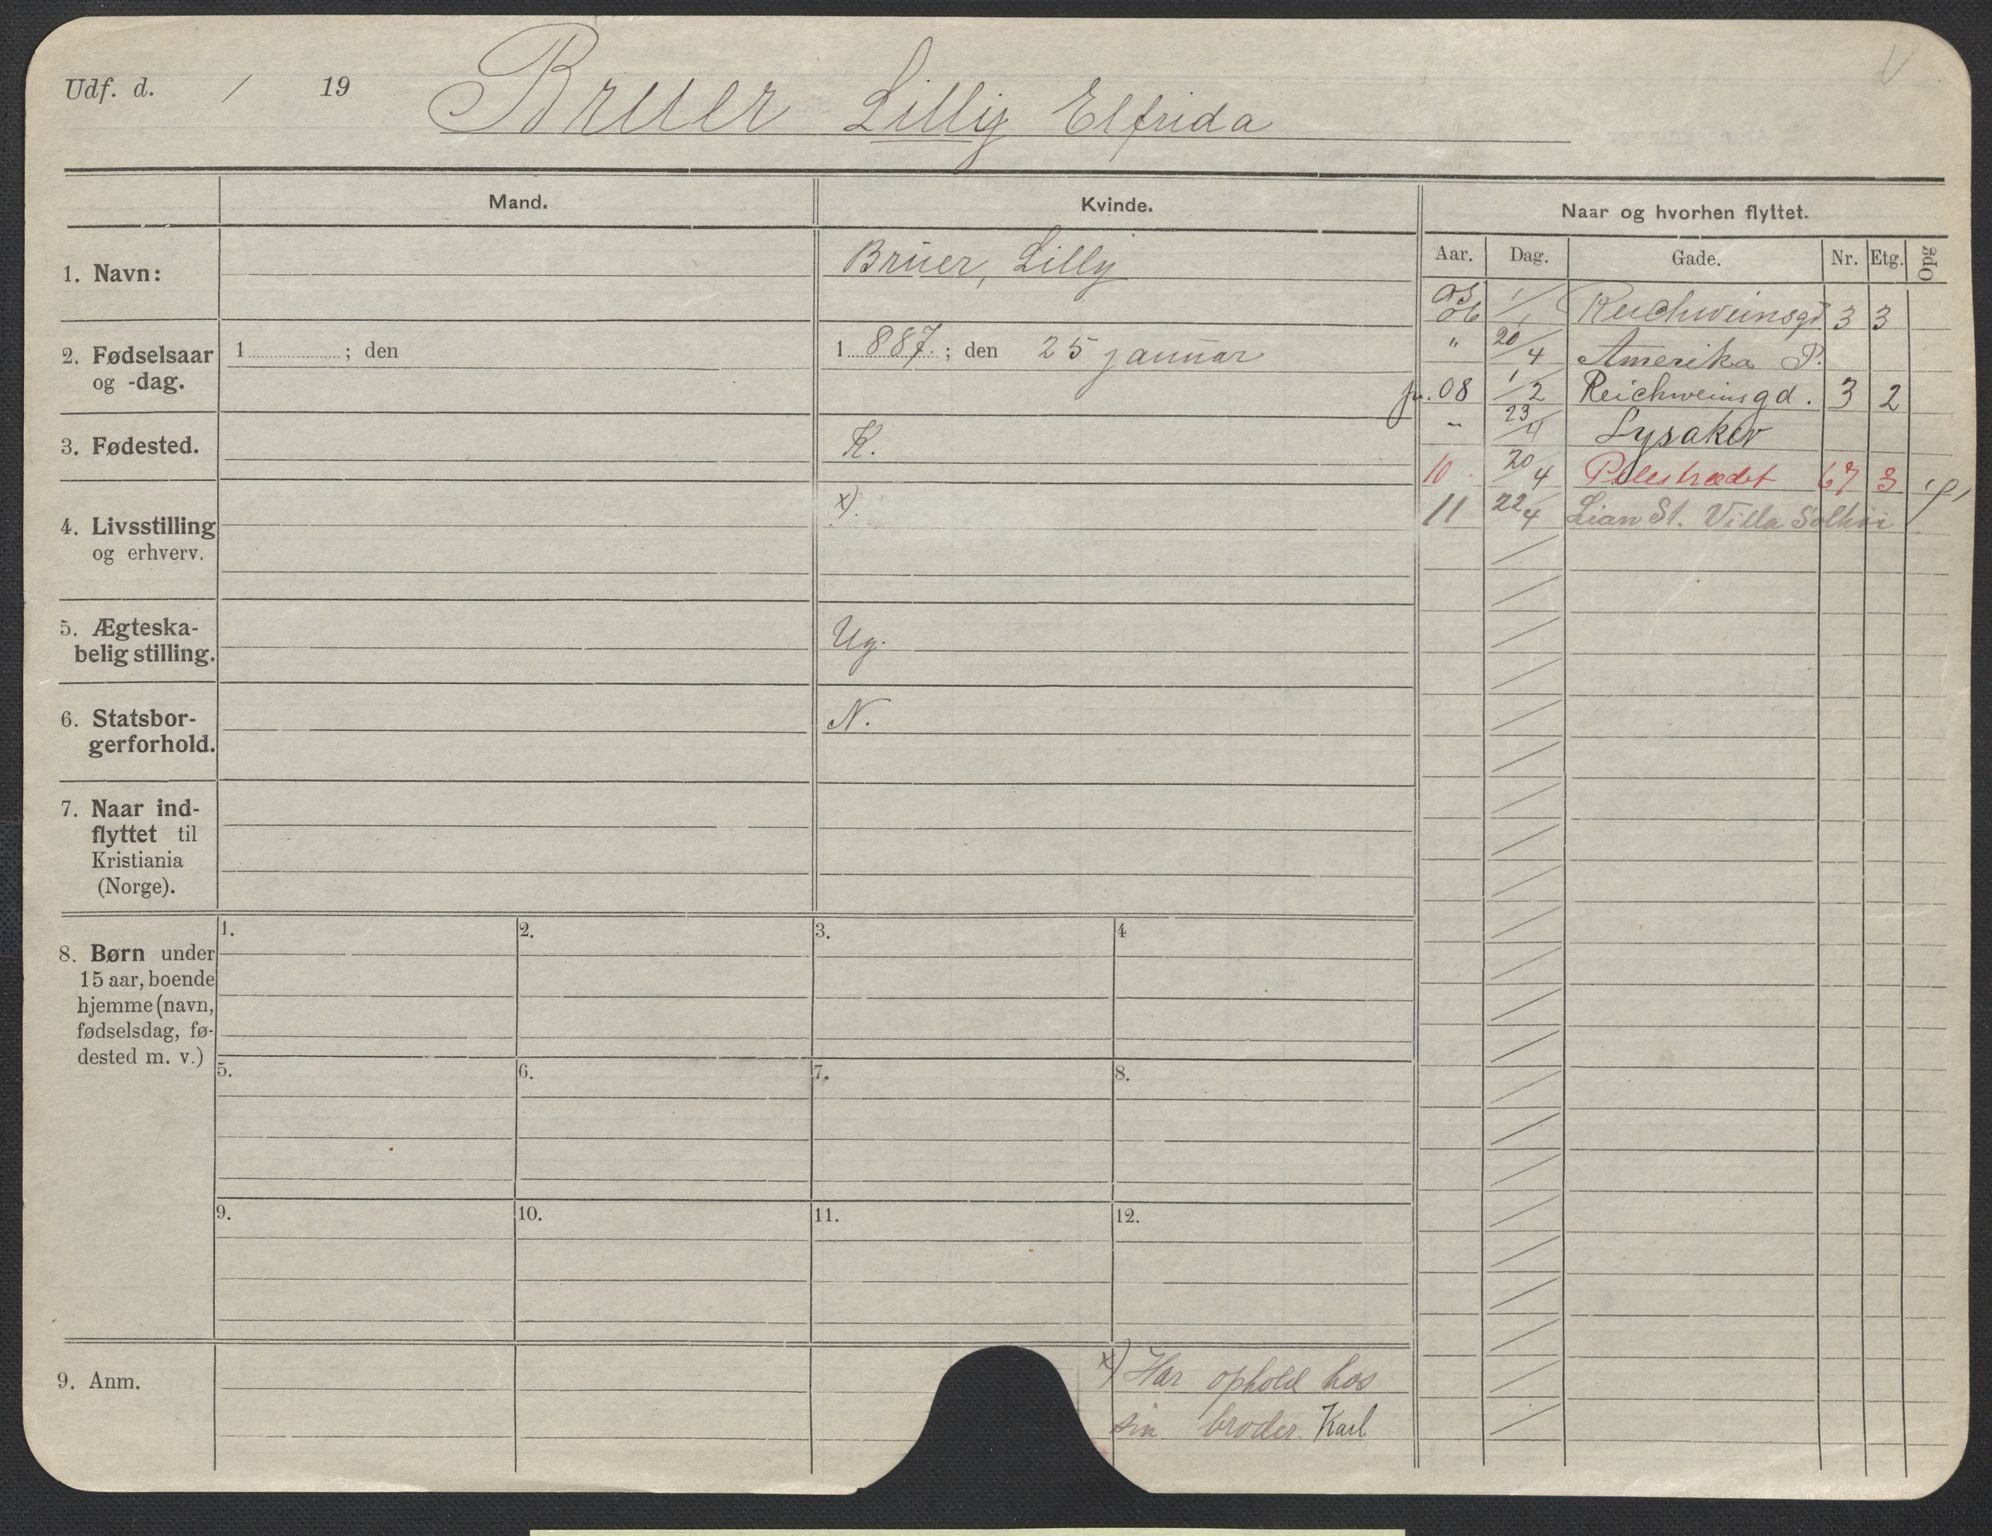 Udf. d. / 19 Bruer Lilly Elfrida
Mand. Kvinde. Naar og hvorhen flyttet.
Aar. Dag. Gade. Nr. Etg. Opg
1. Navn: Bruer, Lilly
2. Fødselsaar
og -dag.
1 ; den
1 887. ; den 25 januar
3. Fødested. K.
4. Livsstilling
og erhverv.
x).
5. Ægteska-
belig stilling.
Ug.
6. Statsbor-
gerforhold.
N.
7. Naar ind-
flyttet til
Kristiania
(Norge).
8. Børn under
15 aar, boende
hjemme (navn,
fødselsdag, fø-
dested m. v.)
1. 2. 3. 4
5. 6. 7. 8.
9. 10. 11. 12.
9. Anm.
x) Har ophold hos
sin broder Karl
05
06 1/1 Reichweinsgd 3 3
" 20/4 Amerika P.
fr. 08 1/2 Reichweinsgd. 3 2
" 23/4 Lysaker
10 20/4 Pilestrædet 67 3
11 22/4 Lian St. Villa Solhøi